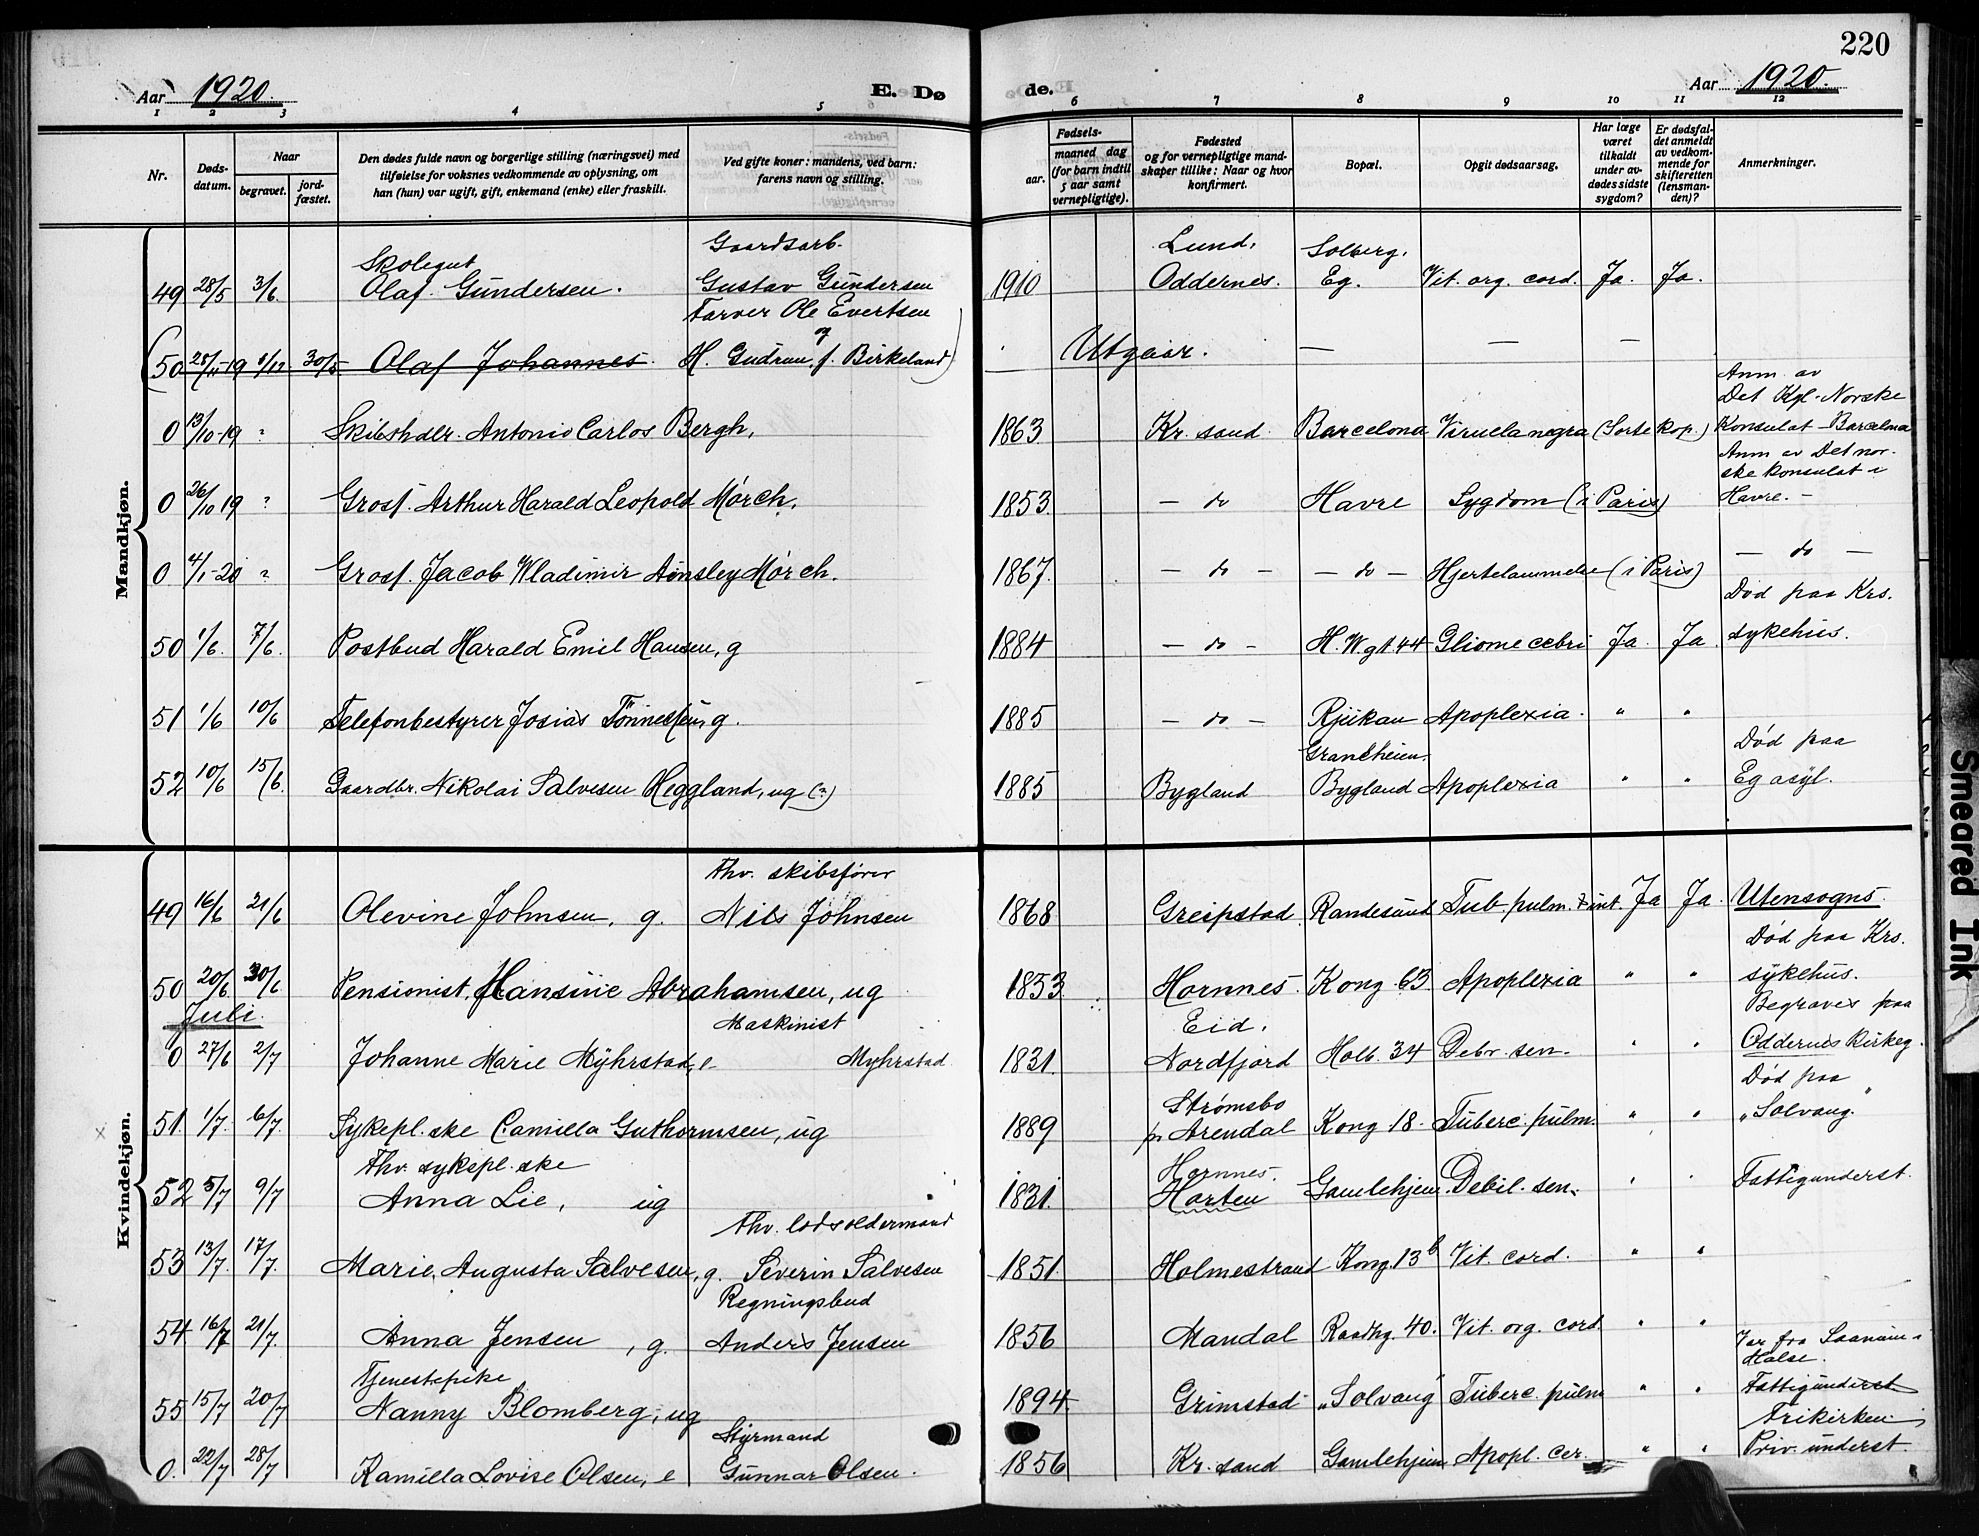 220
Aar 1920. E. Døde. Aar 1920.
1 2 3 4 5 6 7 8 9 10 11 12
Nr. Døds-datum. Naar begravet. jord-fæstet. Den dødes fulde navn og borgerlige stilling (næringsvei) med tilføielse for voksnes vedkommende av oplysning, om han (hun) var ugift, gift, enkemand (enke) eller fraskilt. Ved gifte koner: mandens, ved barn: farens navn og stilling. Fødsels- aar. maaned dag (for barn indtil 5 aar samt vernepligtige). Fødested og for vernepligtige mandskaper tillike: Naar og hvor konfirmert. Bopæl. Opgit dødsaarsag. Har læge været tilkaldt under avdødes sidste sygdom? Er dødsfaldet anmeldt av vedkommende for skifteretten (lensmanden)? Anmerkninger.
Mandkjøn.
49 28/5 3/6. Skolegut Olaf Gundersen. Gaardsarb. Gustav Gundersen 1910 Lund, Oddernes. Solberg, Eg. Vit. org. cord. Ja. Ja.
(50 25/11-19 1/12 30/5 Olaf Johannes. Farver Ole Evertsen og H. Gudrun, f. Birkeland) Utgaar. — — —
0 13/10-19 ? Skibshdlr. Antonio Carlos Bergh, 1863 Kr. sand. Barcelona Viruela negra (Sorte kop.) Anm. av Det Kgl. Norske Konsulat - Barcelona
0 26/10 19 ? Gross. Arthur Harald Leopold Mørch. 1853 — do Havre Sygdom (i Paris) Anm av Det norske konsulat i Havre. -
0 4/1-20 ? Gross. Jacob Wladimir Ainsley Mørch. 1867. — do — — do — Hjertelammelse (i Paris) — do —
50 1/6. 7/6. Postbud Harald Emil Hansen, g 1884 — do - H. Wg1. 44 Gliome cebri Ja. Ja. Død paa Krs. sykehus.
51 1/6 10/6 Telefonbestyrer Josias Tönnessen, g. 1885 — do — Rjukan Apoplexia. " "
52 10/6 15/6. Gaardbr. Nikolai Salvesen Heggland, ug (?) 1885 Bygland Graneheien. Bygland Apoplexia " " Død paa Eg asyl.
Kvindekjøn.
49 16/6 21/6 Olevine Johnsen, g. Fhv. skibsfører Nils Johnsen 1868 Greipstad Randesund Tub pulm. & int. Ja Ja. Utensogns.
50 20/6. 30/6 Pensionist, Hansine Abrahamsen, ug 1853 Hornnes. Kong 63 Apoplexia " " Død paa Krs. sykehus.
Juli.
0 27/6 2/7 Johanne Marie Myhrstad, e Maskinist Myhrstad. 1831. Eid, Nordfjord Holb. 34 Debr. sen. " " Begraves paa Oddernes Kirkeg.
51. 1/7. 6/7. Sykepl.ske Camilla Guthormsen, ug 1889 Strømsbo pr Arendal Kong 18. Tuberc. pulm. " " Død paa "Solvang."
52 5/7 9/7 Fhv. sykepl.ske Anna Lie, ug 1831. Hornnes. Horten Gamlehjem. Debil. sen. " " Fattigunderst.
53 13/7. 17/7. Marie Augusta Salvesen, g. Fhv. lodsoldermand Severin Salvesen 1851. Holmestrand Kong. 13 b Vit. cord. " "
54 16/7 21/7. Anna Jensen, g. Regningsbud Anders Jensen 1856 Mandal Raadhg 40. Vit. org. cord. " " Var fra Halse.
55 15/7 20/7 Tjenestepike Nanny Blomberg, ug 1894 Grimstad "Solvang" Tuberc. pulm " " Fattigunderst Frikirken
0. 22/7 28/7 Kamilla Lovise Olsen, e Styrmand Gunnar Olsen. 1856 Kr. sand Gamlehjem Apopl. cer. " " Priv. underst.
Smeared Ink